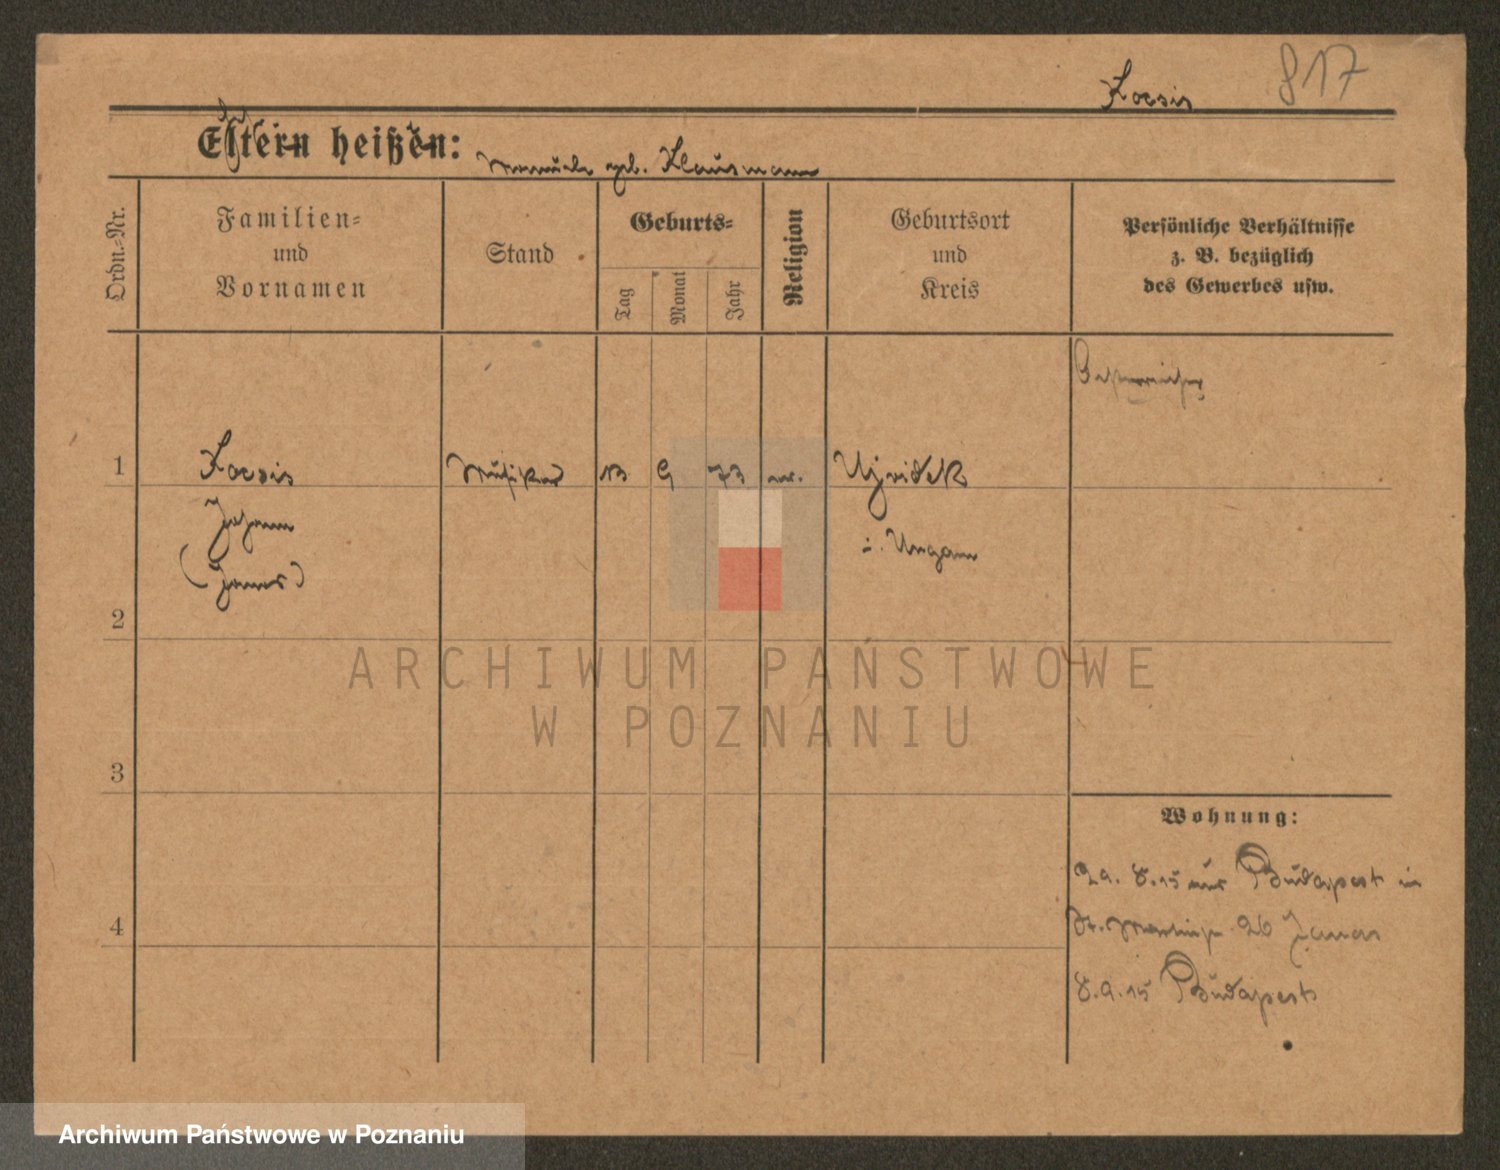 Kocsis 817
Eltern heißen:
geb. Klausmann
Ordn.-Nr.
Familien-
und
Vornamen
Stand
Geburts-
Tag
Monat
Jahr
Religion
Geburtsort
und
Kreis
Persönliche Verhältnisse
z. B. bezüglich
des Gewerbes usw.
Oesterreicher
1 Kocsis Musiker 13 9 73 Ujvidek
Johann
i. Ungarn
(Janos)
2
ARCHIWUM PAŃSTWOWE
W POZNANIU
3
Wohnung:
29. 8. 15 aus Budapest in
St. Martinstr. 26
4
8. 9. 15 Budapest
Archiwum Państwowe w Poznaniu